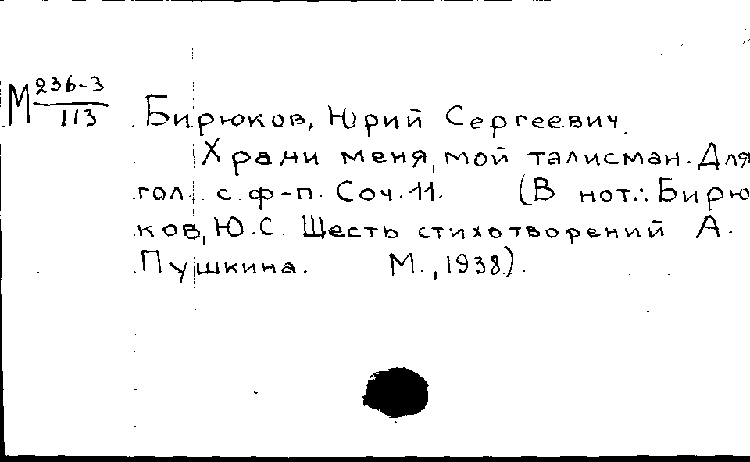 М 236-3/113
Бирюков, Юрий Сергеевич.
Храни меня, мой талисман. Для
гол. с ф-п. Соч. 11. (В нот.: Бирю
ков, Ю.С. Шесть стихотворений А.
Пушкина. М., 1938).